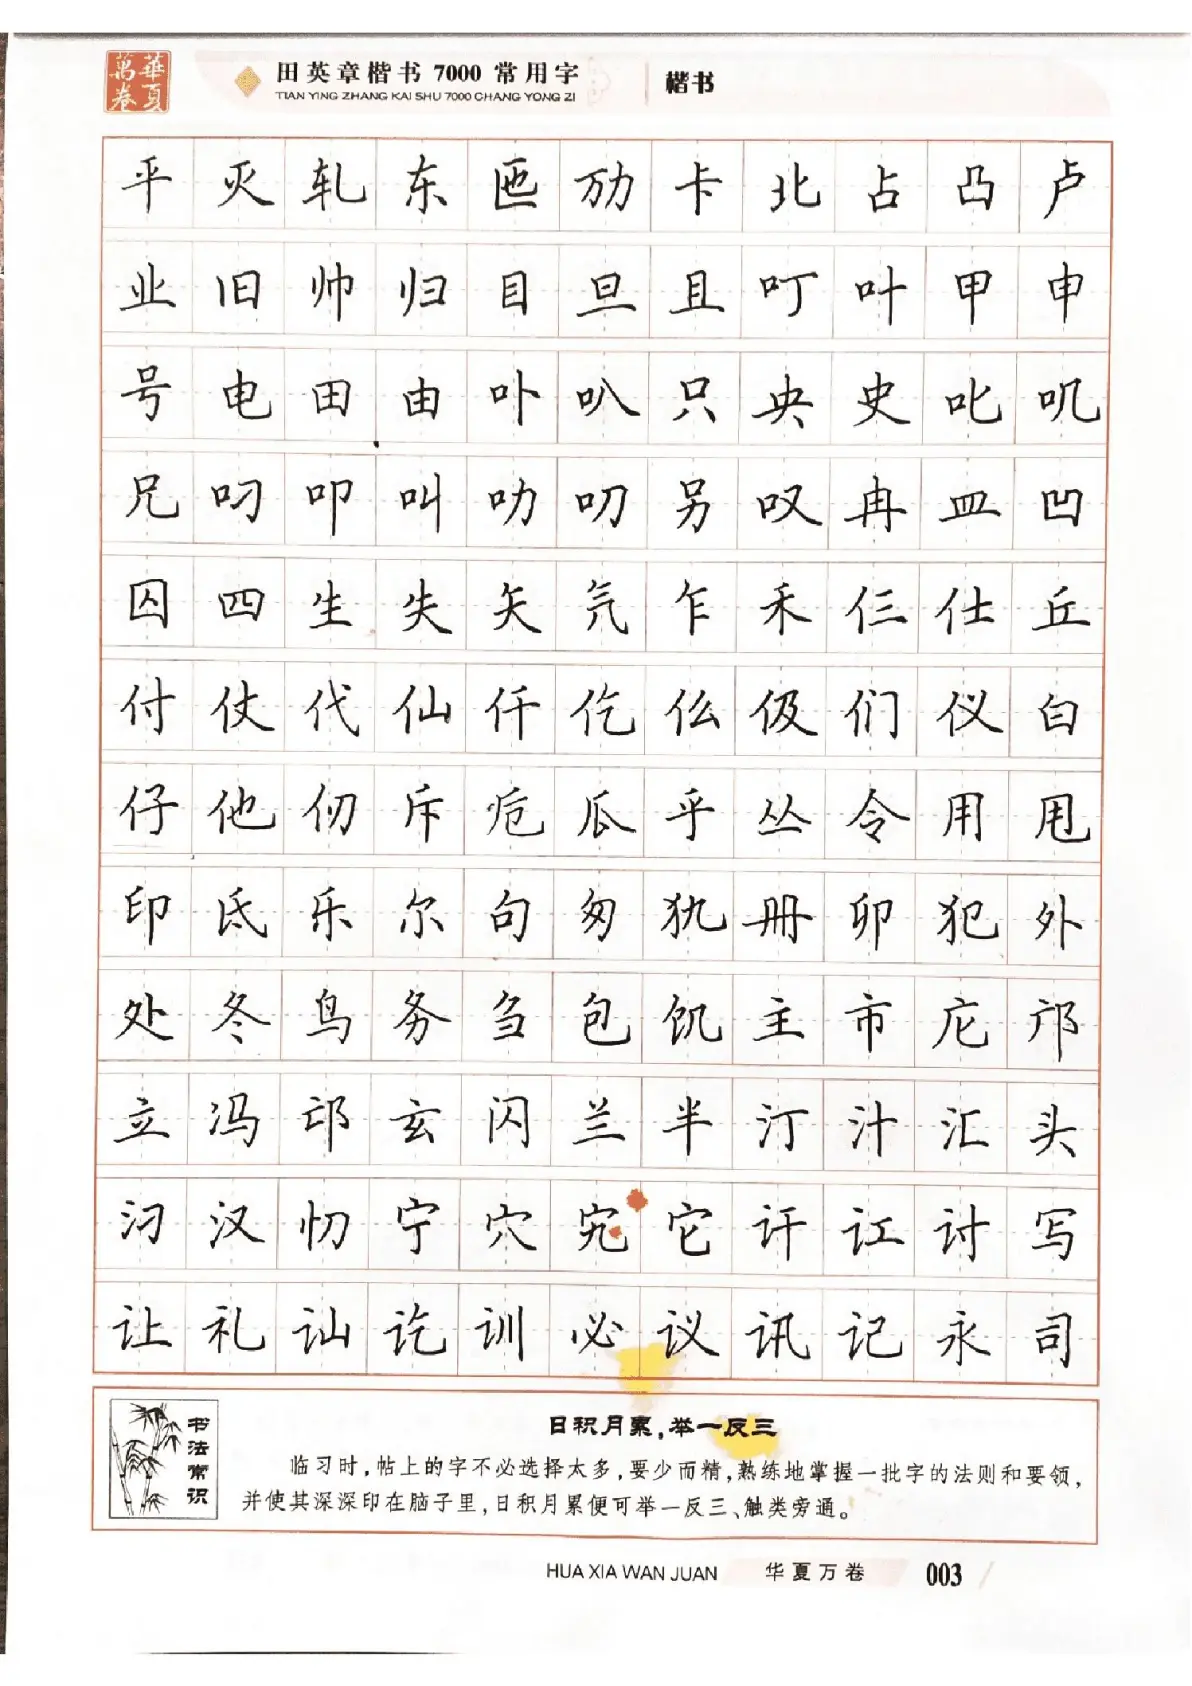 華夏萬卷
田英章楷书7000常用字
TIAN YING ZHANG KAI SHU 7000 CHANG YONG ZI
楷书
平灭轧东匜劢卡北占凸卢
业旧帅归目旦且叮叶甲申
号电田由卟叭只央史叱叽
兄叼叩叫叻叨另叹冉皿凹
囚四生失矢氕乍禾仨仕丘
付仗代仙仟仡仫伋们仪白
仔他仞斥卮瓜乎丛令用甩
印氐乐尔句匆犰册卯犯外
处冬鸟务刍包饥主市庀邝
立冯邙玄闪兰半汀汁汇头
汈汉忉宁穴宄它讦讧讨写
让礼讪讫训必议讯记永司
书法常识
日积月累,举一反三
临习时,帖上的字不必选择太多,要少而精,熟练地掌握一批字的法则和要领,
并使其深深印在脑子里,日积月累便可举一反三、触类旁通。
HUA XIA WAN JUAN 华夏万卷 003